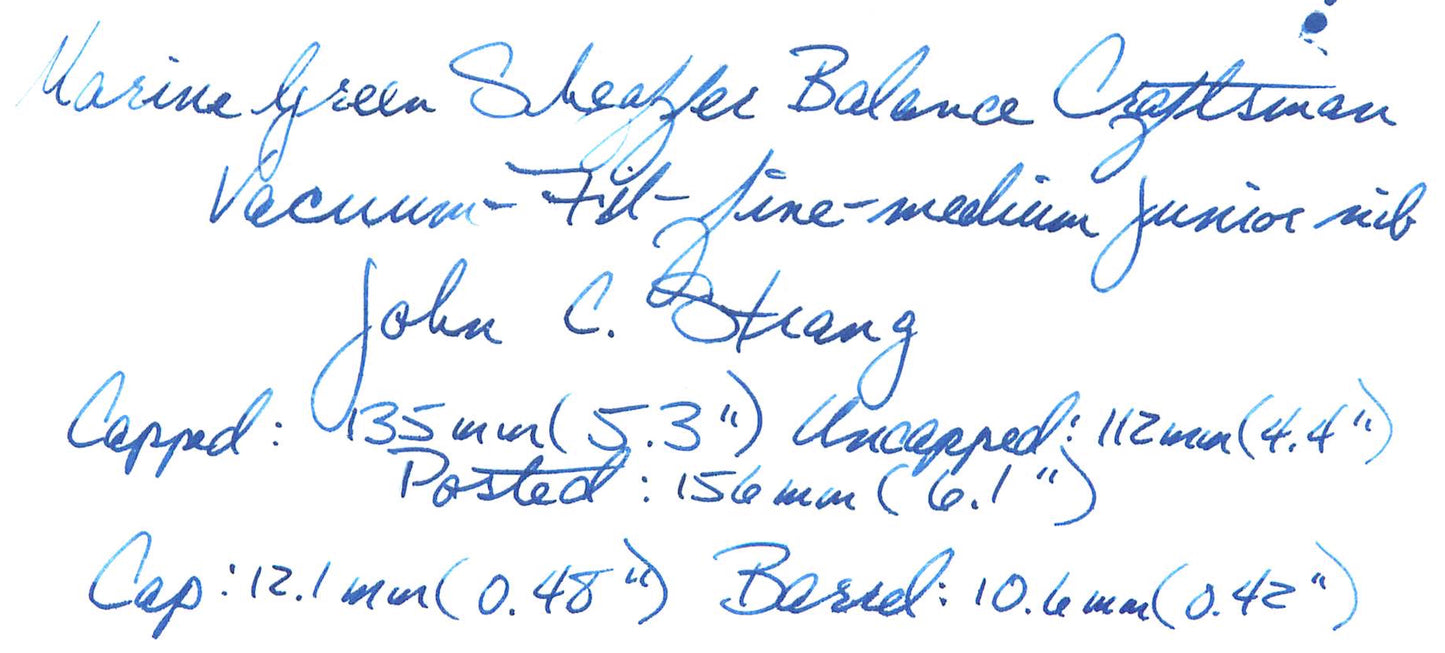 Marine Green Sheaffer Balance Craftsman
Vacuum-Fil- fine-medium junior nib
John C. Strang
Capped: 135mm(5.3") Uncapped: 112mm(4.4")
Posted: 156mm (6.1")
Cap: 12.1mm(0.48") Barrel: 10.6mm(0.42")